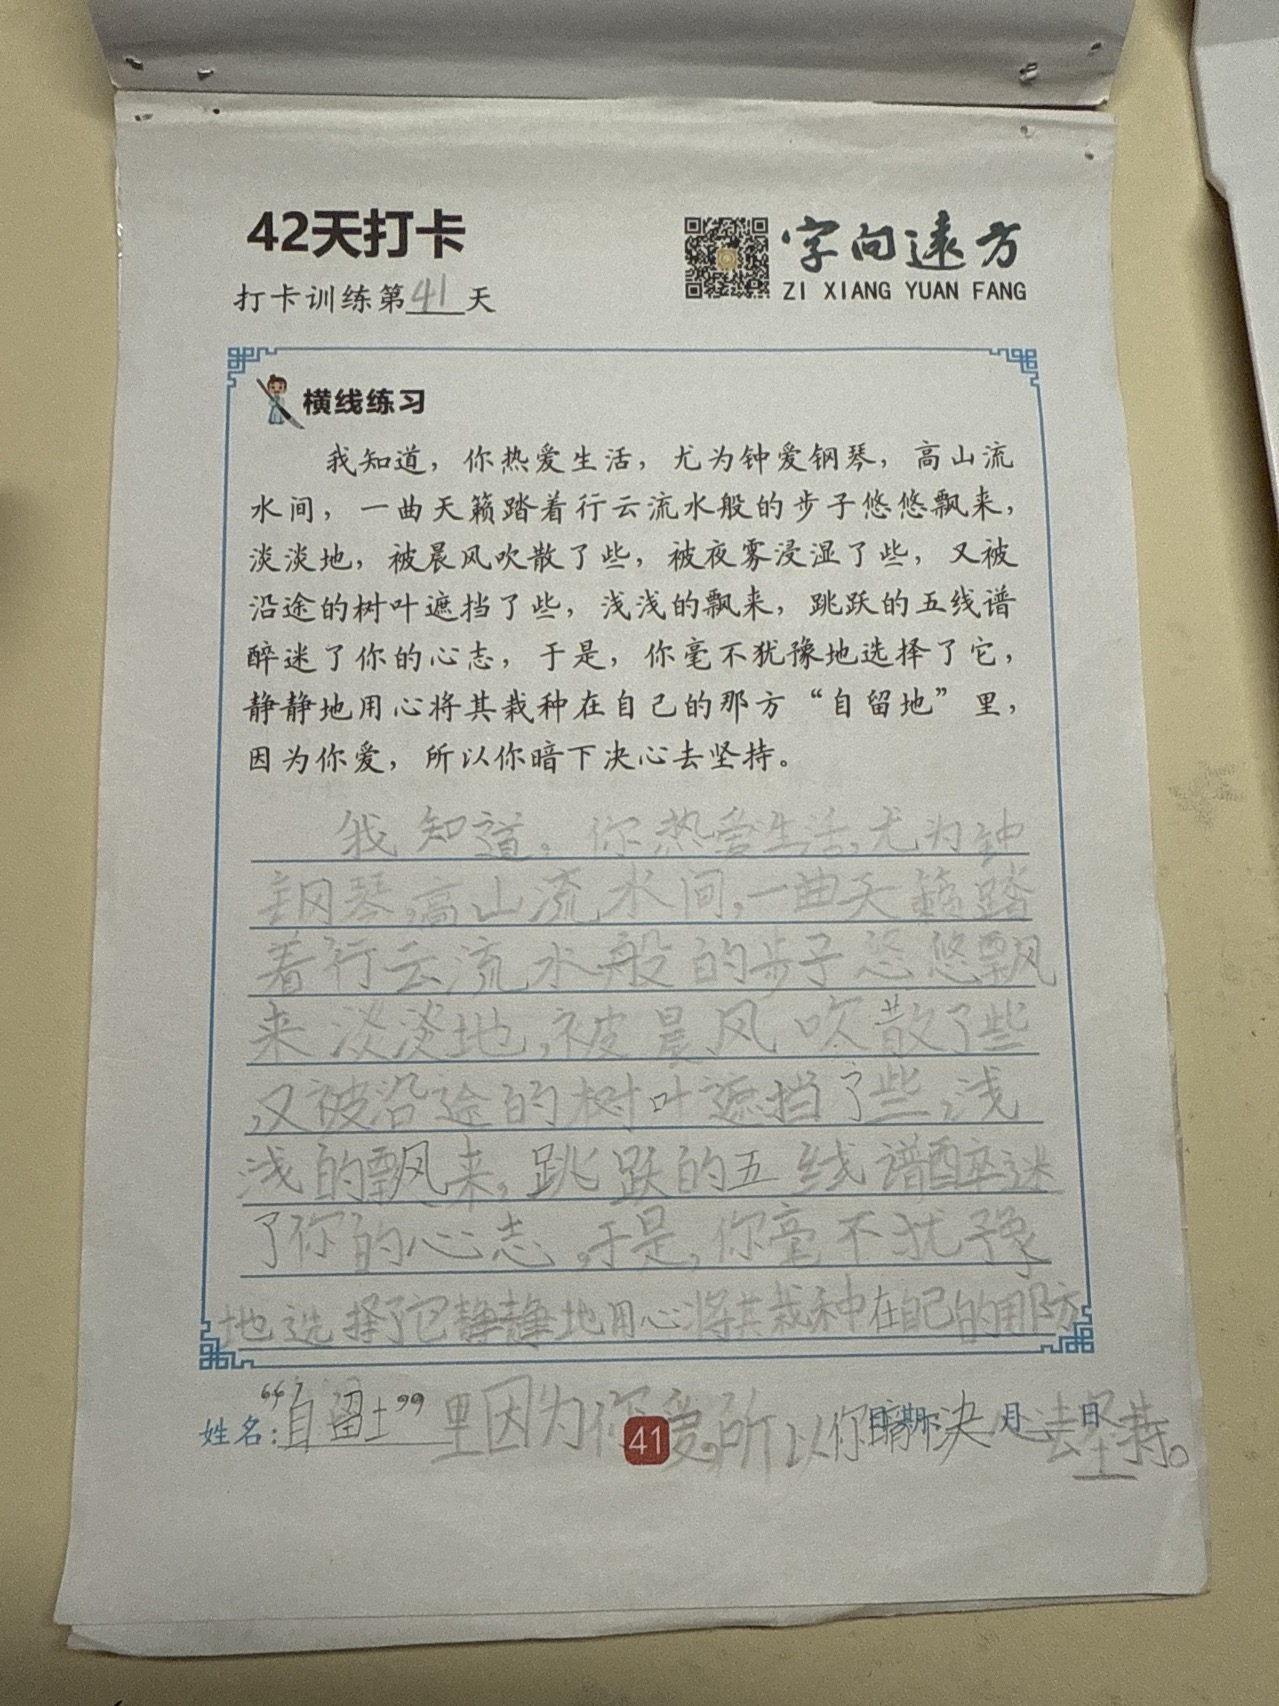 42天打卡
字向远方
ZI XIANG YUAN FANG
打卡训练第41天
横线练习
我知道，你热爱生活，尤为钟爱钢琴，高山流
水间，一曲天籁踏着行云流水般的步子悠悠飘来，
淡淡地，被晨风吹散了些，被夜雾浸湿了些，又被
沿途的树叶遮挡了些，浅浅的飘来，跳跃的五线谱
醉迷了你的心志，于是，你毫不犹豫地选择了它，
静静地用心将其栽种在自己的那方“自留地”里，
因为你爱，所以你暗下决心去坚持。
我知道，你热爱生活，尤为钟
钢琴，高山流水间，一曲天籁踏
着行云流水般的步子悠悠飘
来淡淡地，被晨风吹散了些
，又被沿途的树叶遮挡了些，浅
浅的飘来，跳跃的五线谱醉迷
了你的心志，于是，你毫不犹豫
地选择了它静静地用心将其栽种在自己的那方
姓名：“自留土”里因为你爱，所以你暗下决心去坚持。
日期 月 日
41